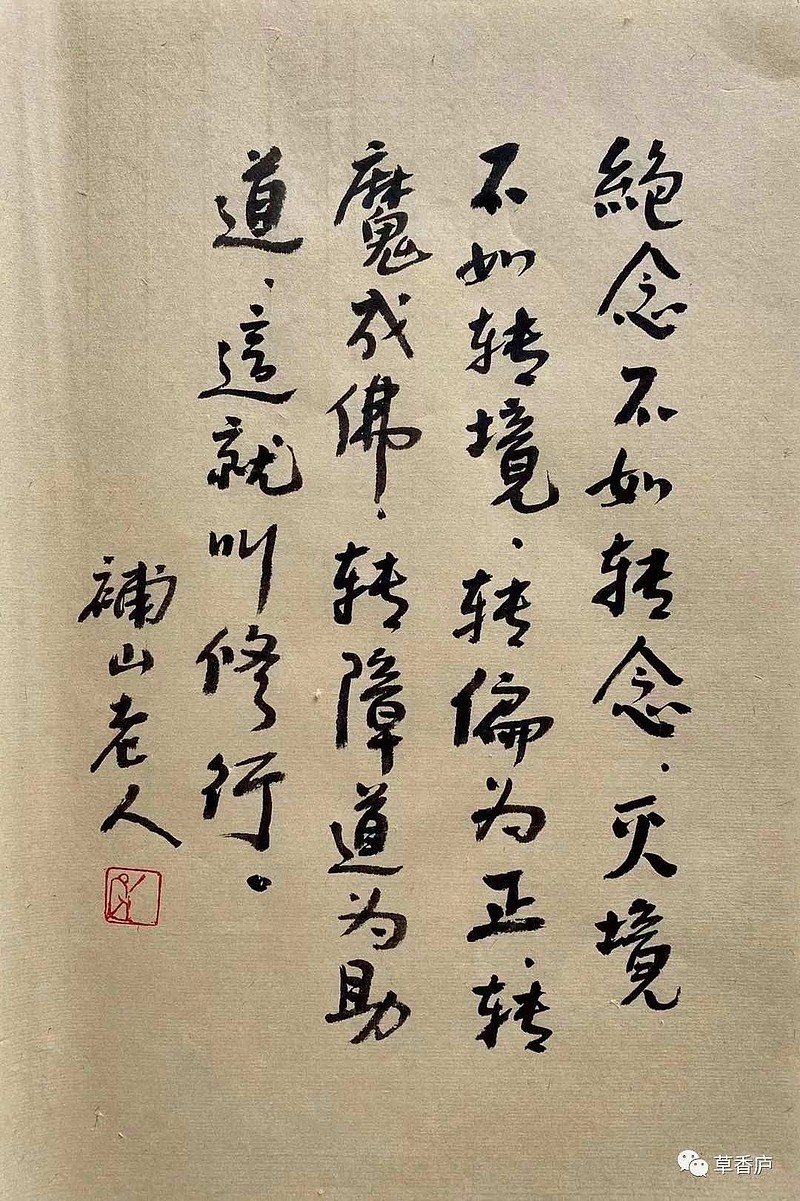 絶念不如转念，灭境
不如转境，转偏为正，转
魔成佛，转障道为助
道，這就叫修行。
補山老人
草香庐